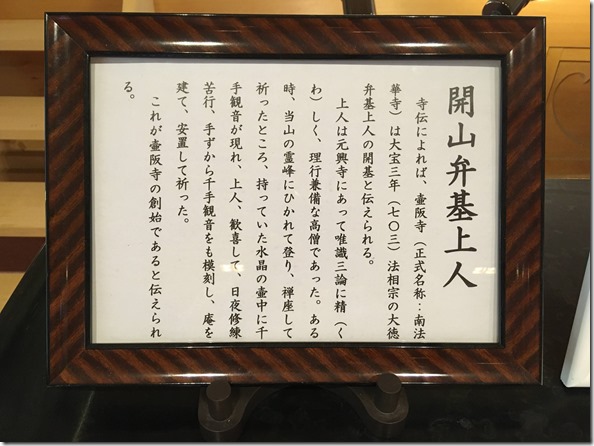 開山弁基上人
寺伝によれば、壷阪寺（正式名称：南法
華寺）は大宝三年（七〇三）法相宗の大徳
弁基上人の開基と伝えられる。
上人は元興寺にあって唯識三論に精（く
わ）しく、理行兼備な高僧であった。ある
時、当山の霊峰にひかれて登り、禅座して
祈ったところ、持っていた水晶の壷中に千
手観音が現れ、上人、歓喜して、日夜修練
苦行、手ずから千手観音をも模刻し、庵を
建て、安置して祈った。
これが壷阪寺の創始であると伝えられ
る。